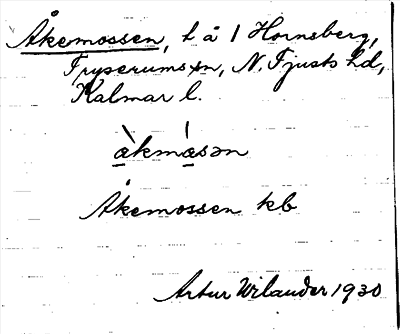 Åkemossen, t å 1 Hornsberg,
Fryserums sn, N. Tjusts hd,
Kalmar l.
à̲kmá̲sən
Åkemossen kb
Artur Wilander 1930